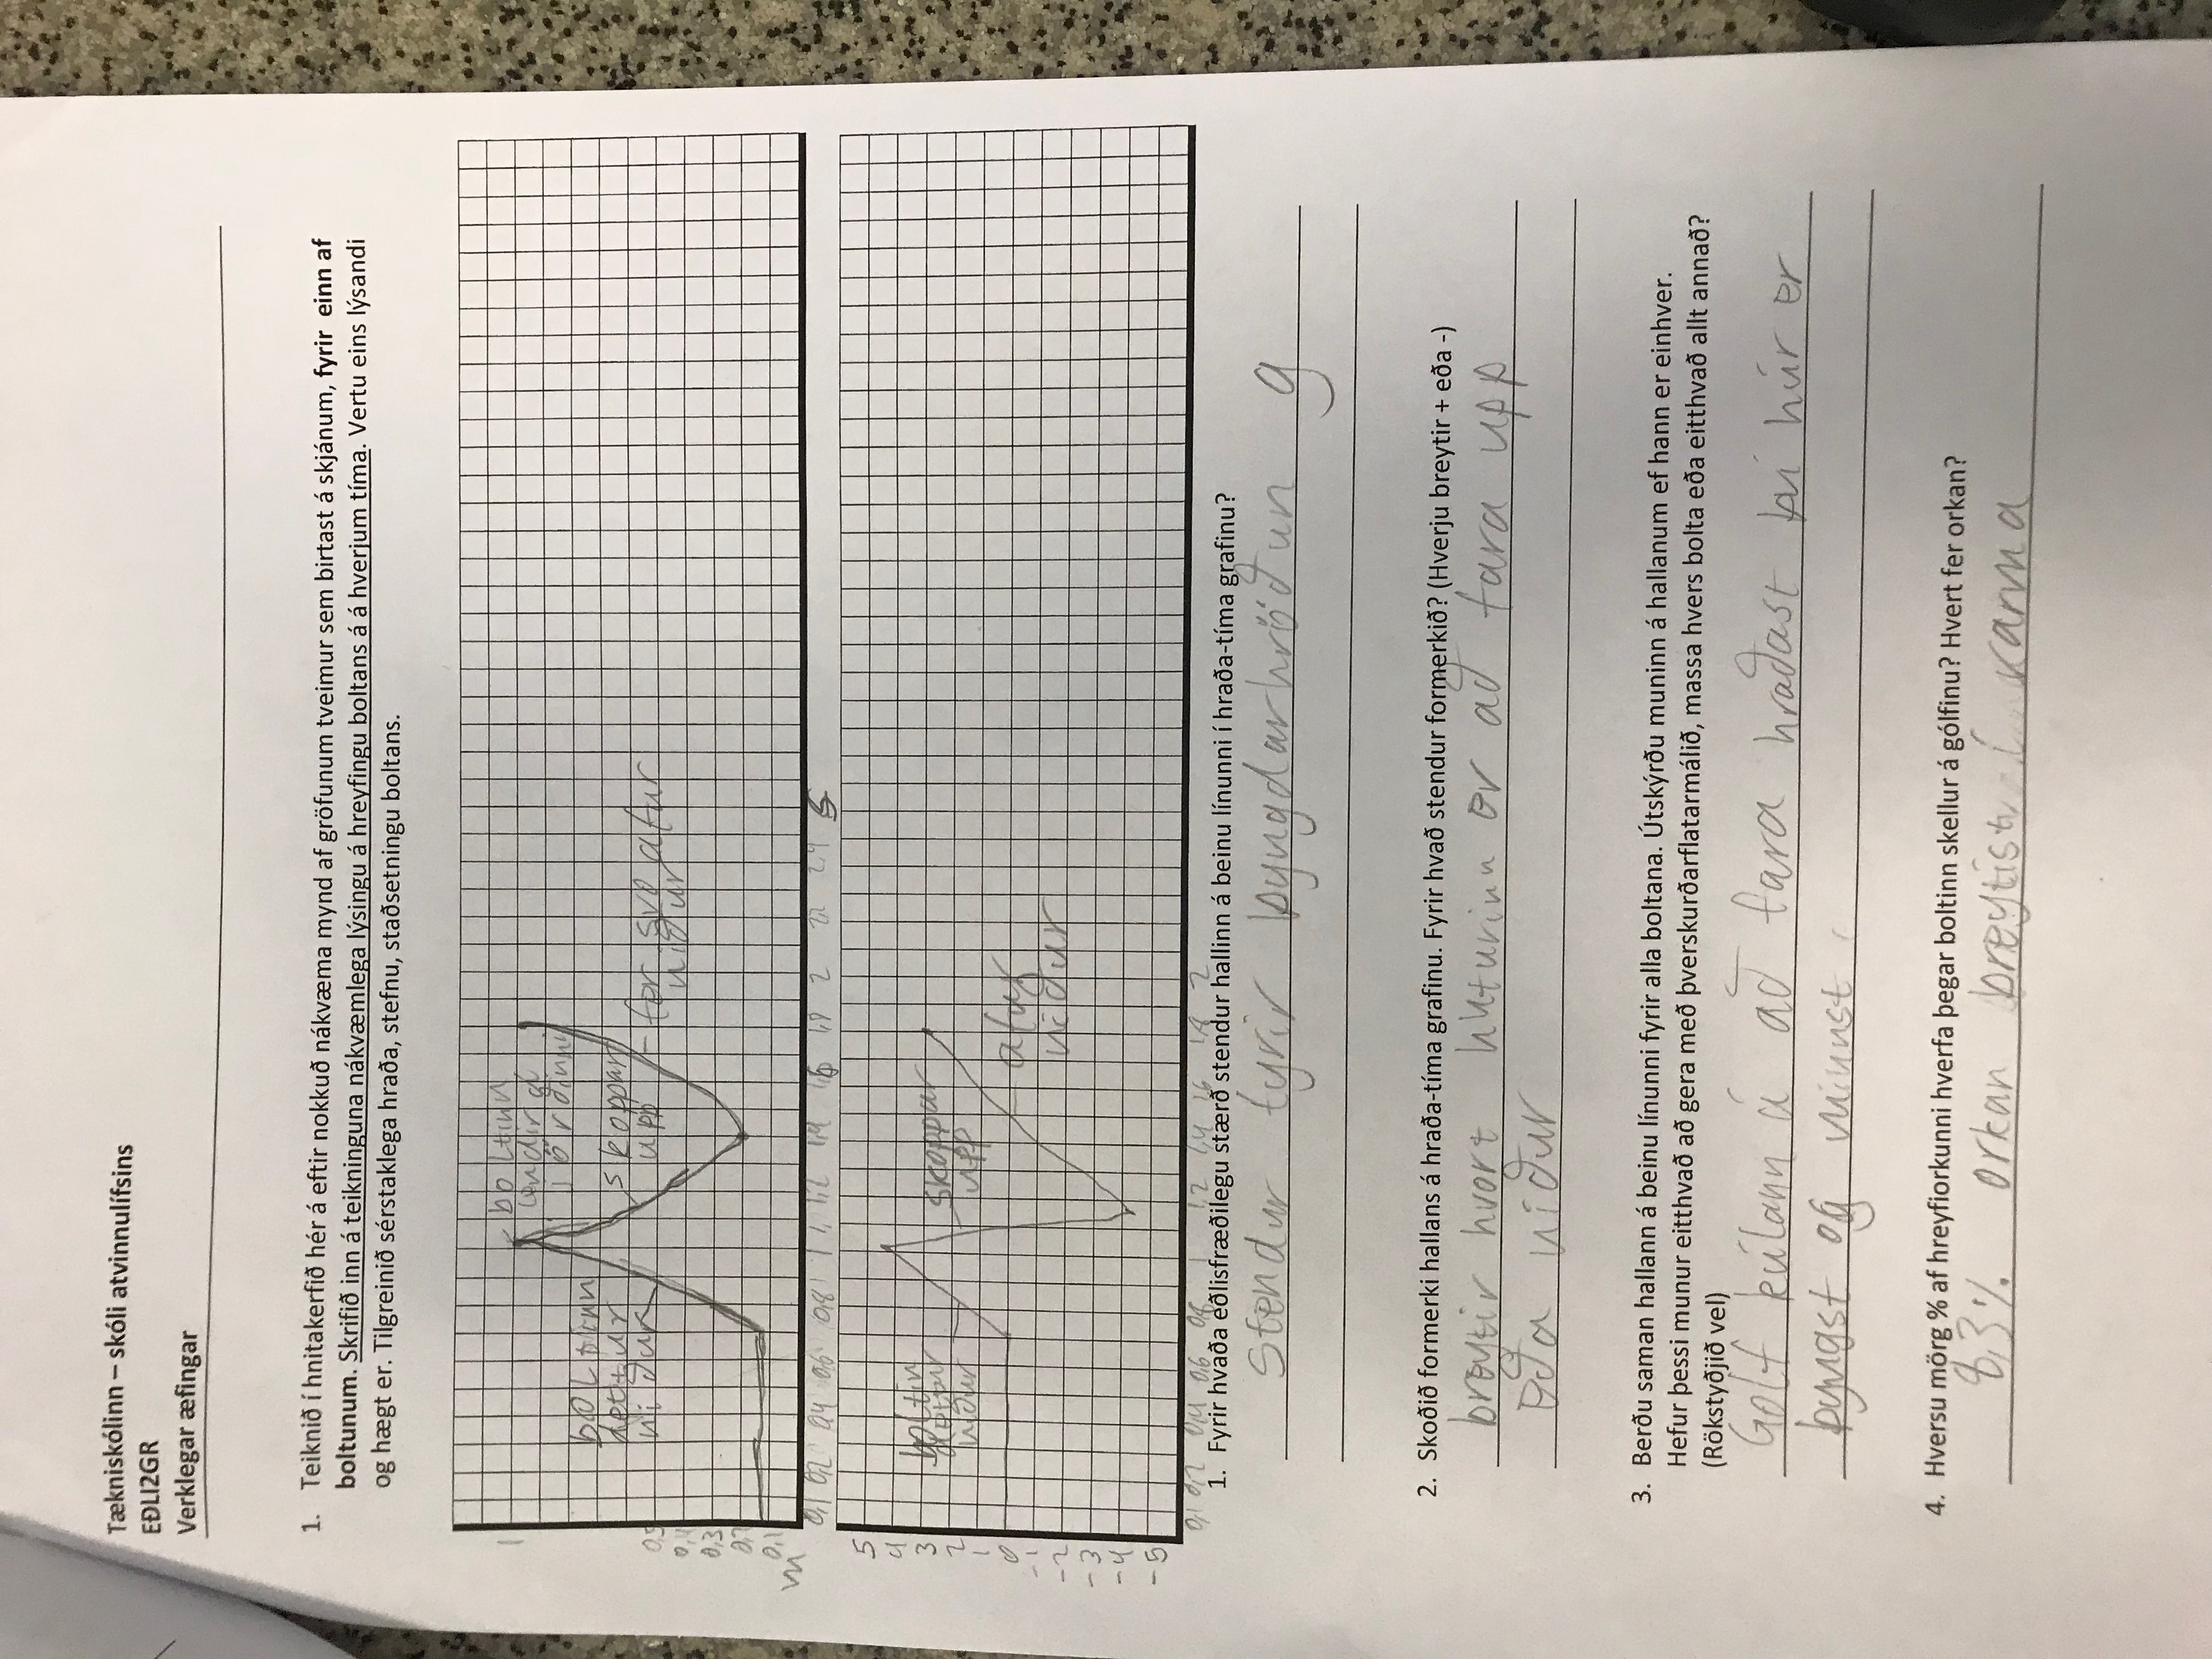 Tækniskólinn – skóli atvinnulífsins
EÐLI2GR
Verklegar æfingar
1. Teiknið í hnitakerfið hér á eftir nokkuð nákvæma mynd af gröfunum tveimur sem birtast á skjánum, fyrir einn af
boltunum. Skrifið inn á teikninguna nákvæmlega lýsingu á hreyfingu boltans á á hverjum tíma. Vertu eins lýsandi
og hægt er. Tilgreinið sérstaklega hraða, stefnu, staðsetningu boltans.
1
boltinn
lendir á
jörðinni
boltinn
dettur
niður
skoppar
upp
fer svo aftur
niður
0,5
0,4
0,3
0,2
0,1
m
0,1 0,2 0,4 0,6 0,8 1 1,2 1,4 1,6 1,8 2 2,2 2,4 s
5
4
3
2
1
0
-1
-2
-3
-4
-5
boltin
dettur
niður
skoppar
upp
aftur
niður
0,1 0,2 0,4 0,6 0,8 1 1,2 1,4 1,6 1,8 2
1. Fyrir hvaða eðlisfræðilegu stærð stendur hallinn á beinu línunni í hraða-tíma grafinu?
stendur fyrir þyngdarhröðun g
2. Skoðið formerki hallans á hraða-tíma grafinu. Fyrir hvað stendur formerkið? (Hverju breytir + eða -)
breytir hvort hluturinn er að fara upp
eða niður
3. Berðu saman hallann á beinu línunni fyrir alla boltana. Útskýrðu muninn á hallanum ef hann er einhver.
Hefur þessi munur eitthvað að gera með þverskurðarflatarmálið, massa hvers bolta eða eitthvað allt annað?
(Rökstyðjið vel)
Golf kúlann á að fara hraðast því hún er
þyngst og minnst
4. Hversu mörg % af hreyfiorkunni hverfa þegar boltinn skellur á gólfinu? Hvert fer orkan?
8,3% orkan breytist í varma